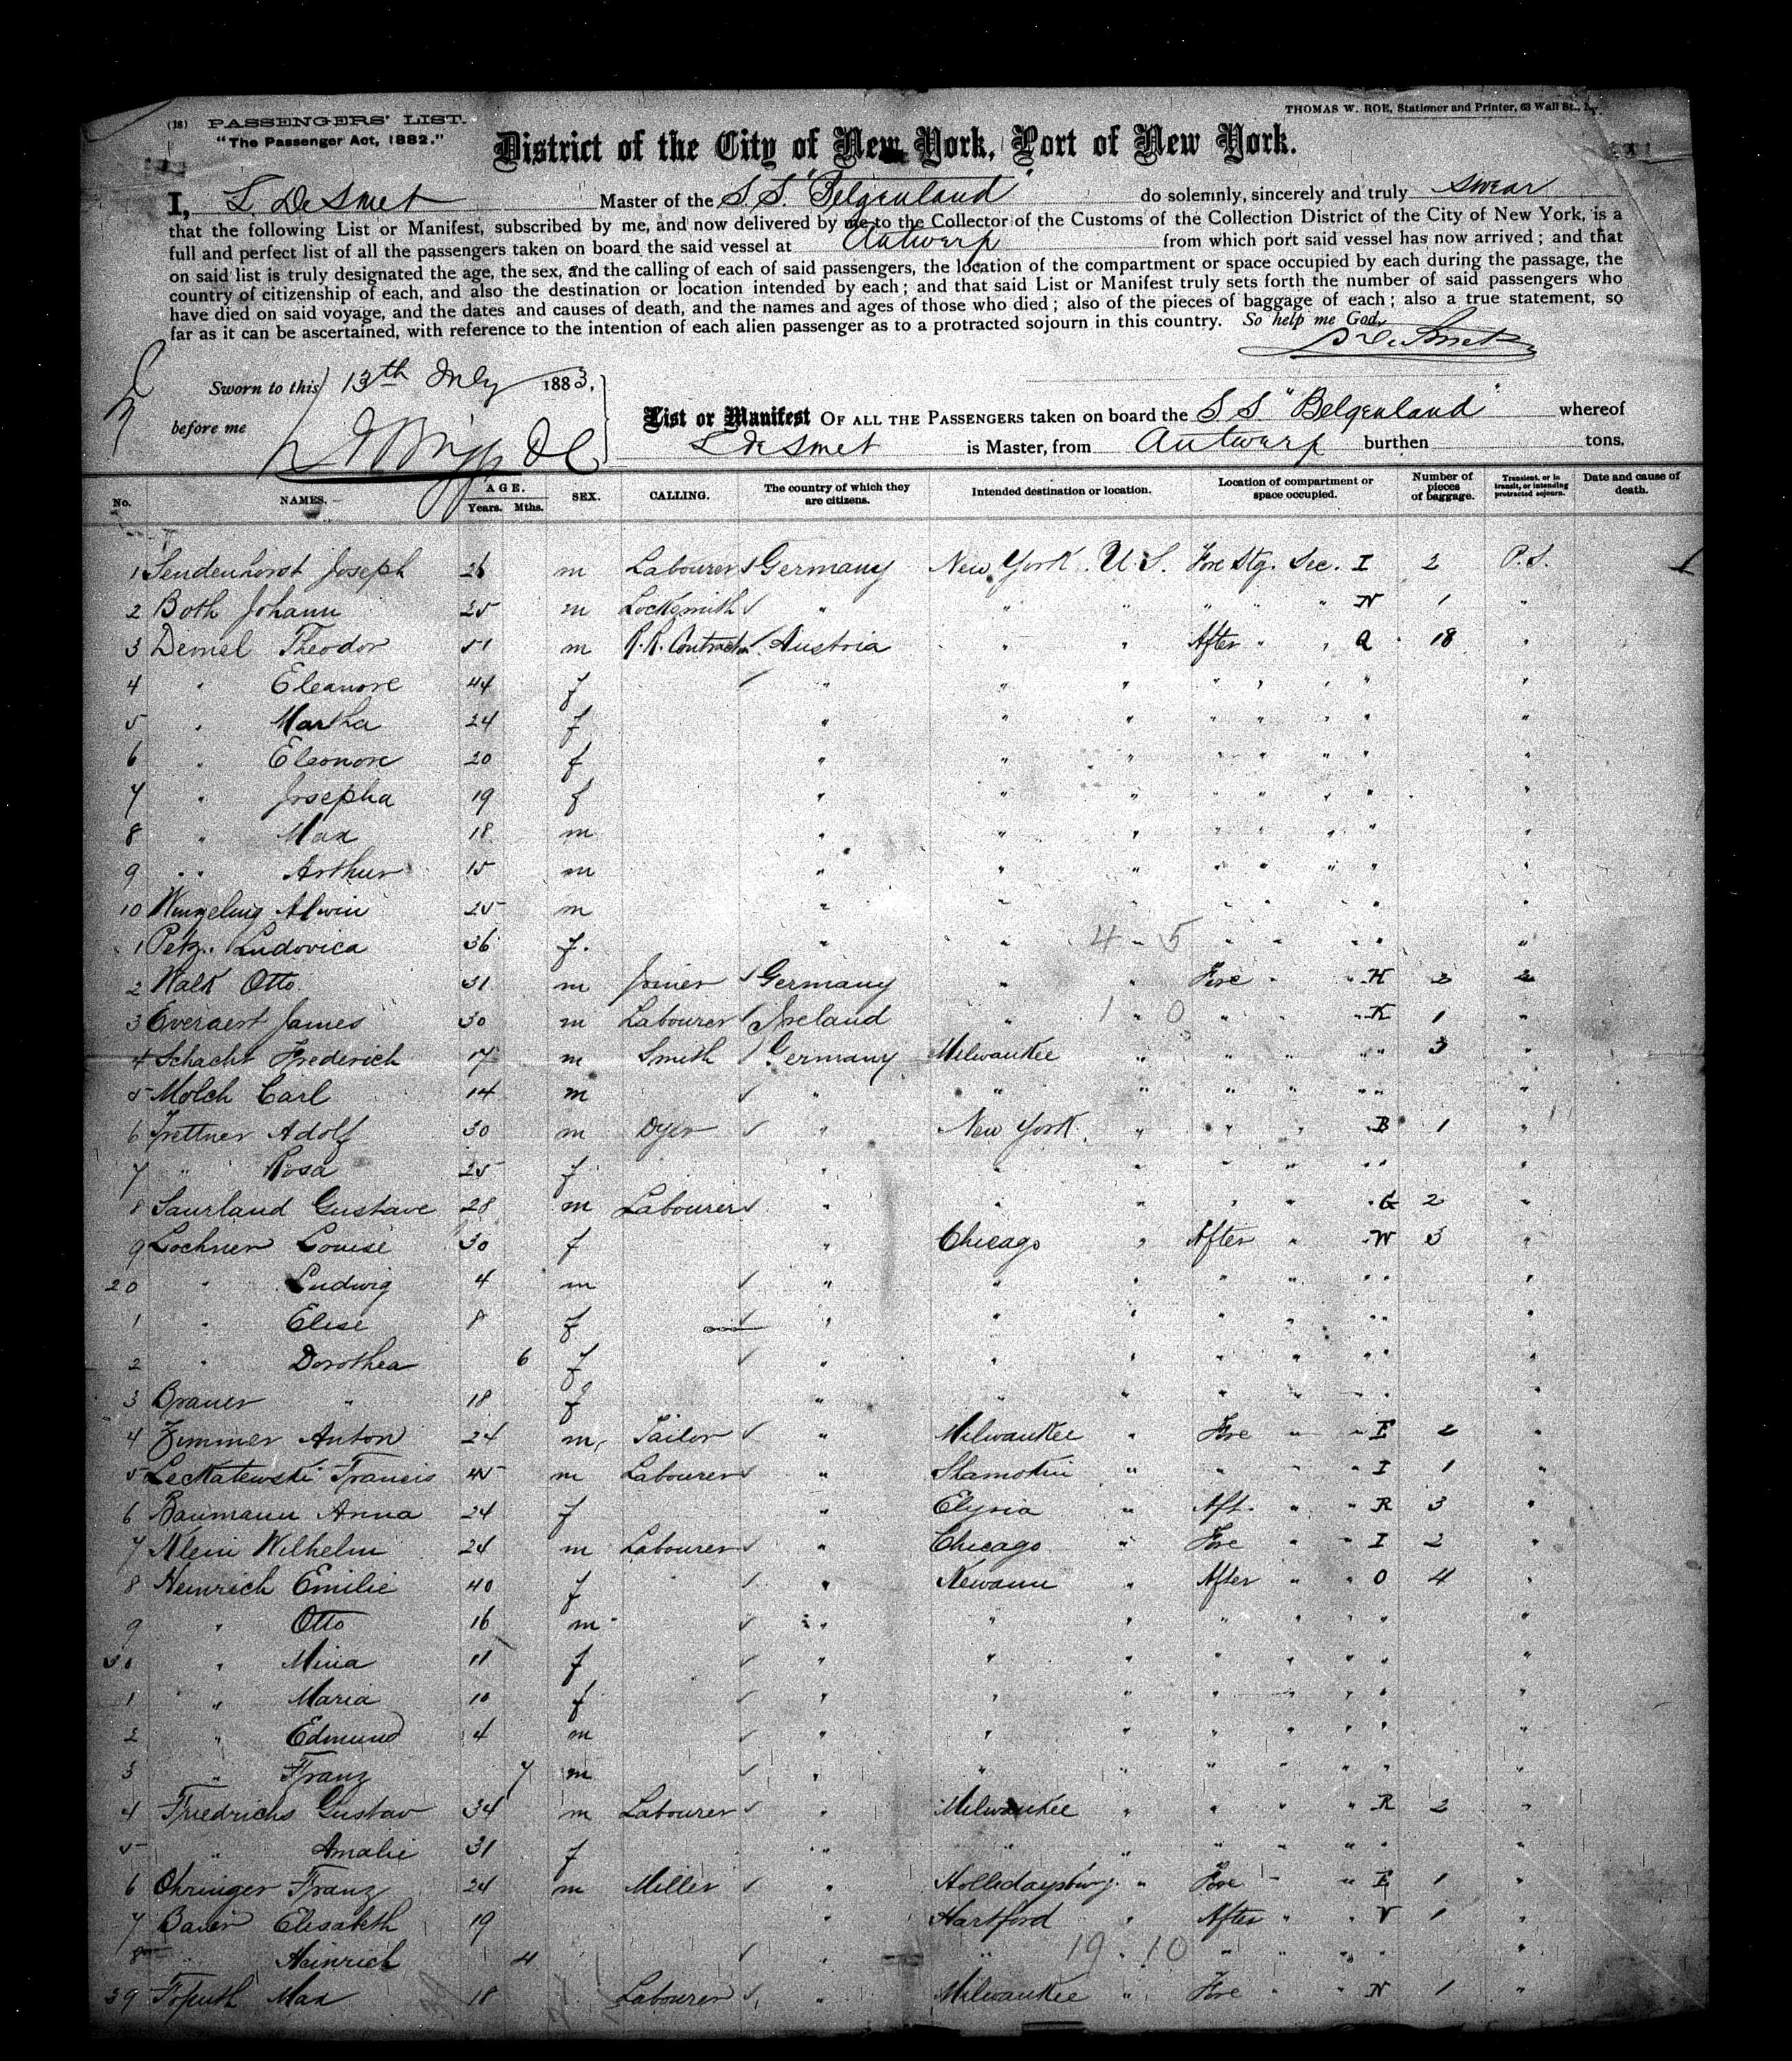 THOMAS W. ROE, Stationer and Printer, 63 Wall St., N.Y.
(18) PASSENGERS' LIST.
"The Passenger Act, 1882."
District of the City of New York, Port of New York.
I, L DeSmet Master of the S.S. "Belgenland" do solemnly, sincerely and truly swear
that the following List or Manifest, subscribed by me, and now delivered by me to the Collector of the Customs of the Collection District of the City of New York, is a
full and perfect list of all the passengers taken on board the said vessel at Antwerp from which port said vessel has now arrived; and that
on said list is truly designated the age, the sex, and the calling of each of said passengers, the location of the compartment or space occupied by each during the passage, the
country of citizenship of each, and also the destination or location intended by each; and that said List or Manifest truly sets forth the number of said passengers who
have died on said voyage, and the dates and causes of death, and the names and ages of those who died; also of the pieces of baggage of each; also a true statement, so
far as it can be ascertained, with reference to the intention of each alien passenger as to a protracted sojourn in this country. So help me God.
L DeSmet
Sworn to this 13th July 1883,
before me
List or Manifest OF ALL THE PASSENGERS taken on board the S S "Belgenland" whereof
L DeSmet is Master, from Antwerp burthen tons.
No. NAMES. AGE. Years. Mths. SEX. CALLING. The country of which they are citizens. Intended destination or location. Location of compartment or space occupied. Number of pieces of baggage. Transient, or in transit, or intending protracted sojourn. Date and cause of death.
1 Sendenhorst Joseph 26 m Labourer Germany New York U.S. Fore Stg. Sec. I 2 P.S. 1
2 Both Johann 25 m Locksmith " " " " " " N 1 "
3 Demel Theodor 51 m R.R. Contractor Austria " " After " " Q 18 "
4 " Eleanore 44 f " " " " " " " "
5 " Martha 24 f " " " " " " " "
6 " Eleonore 20 f " " " " " " " "
7 " Josepha 19 f " " " " " " " "
8 " Max 18 m " " " " " " " "
9 " " Arthur 15 m " " " " " " " "
10 Alwin 25 m " " " " " " " "
1 Petz. Ludovica 36 f. " " 4 " 5 " " " " "
2 Walk Otto 31 m Joiner Germany " " Fore " " H 2 "
3 Everaert James 30 m Labourer Ireland " 1 " 0 " " " K 1 "
4 Schacht Frederich 17 m Smith Germany Milwaukee " " " " " 3 "
5 Molch Carl 14 m " " " " " " " "
6 Trettner Adolf 30 m Dyer " New York " " " " B 1 "
7 " Rosa 25 f " " " " " " " "
8 Saurland Gustave 28 m Labourer " " " " " " G 2 "
9 Lochner Louise 30 f " Chicago " After " " W 3 "
20 " Ludwig 4 m " " " " " " " "
1 " Elise 8 f " " " " " " " "
2 " Dorothea 6 f " " " " " " " "
3 Brauer " 18 f " " " " " " " "
4 Zimmer Anton 24 m Tailor " Milwaukee " Fore " " E 2 "
5 Leckatewski Francis 45 m Labourer " Shamokin " " " " I 1 "
6 Baumann Anna 24 f " Elyria " Aft. " " R 3 "
7 Klein Wilhelm 24 m Labourer " Chicago " Fore " " I 2 "
8 Heinrich Emilie 40 f " Kewanee " After " " O 4 "
9 " Otto 16 m " " " " " " " "
30 " Mina 11 f " " " " " " " "
1 " Maria 10 f " " " " " " " "
2 " Edmund 4 m " " " " " " " "
3 " Franz 7 m " " " " " " " "
4 Friedrichs Gustav 34 m Labourer " Milwaukee " " " " R 2 "
5 " Amalie 31 f " " " " " " " "
6 Ohringer Franz 24 m Miller " Hollidaysburg " Fore " " E 1 "
7 Bauer Elisabeth 19 " Hartford " After " " V 1 "
8 " Heinrich 4 " " 19 " 10 " " " " "
39 Max 18 Labourer " Milwaukee " Fore " " N 1 "